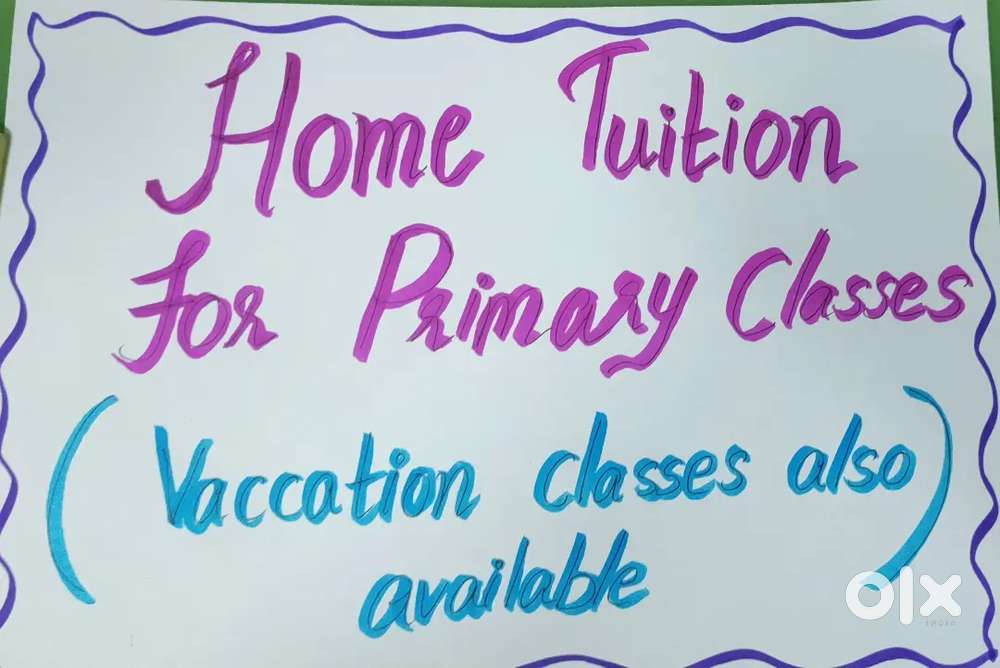 Home Tuition
For Primary Classes
(Vaccation classes also
available)
olx